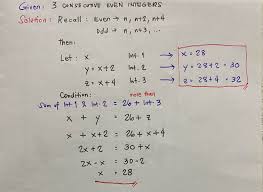 Given: 3 CONSECUTIVE EVEN INTEGERS
Solution: Recall: Even → n, n+2, n+4
Odd → n, n+3, ...
Then:
Let: x Int. 1 → x = 28
y = x+2 Int. 2 → y = 28+2 = 30
z = x+4 Int. 3 → z = 28+4 = 32
Condition: more than
Sum of Int. 1 & Int. 2 = 26 + Int. 3
x + y = 26 + z
x + x+2 = 26 + x+4
2x + 2 = 30 + x
2x - x = 30 - 2
x = 28